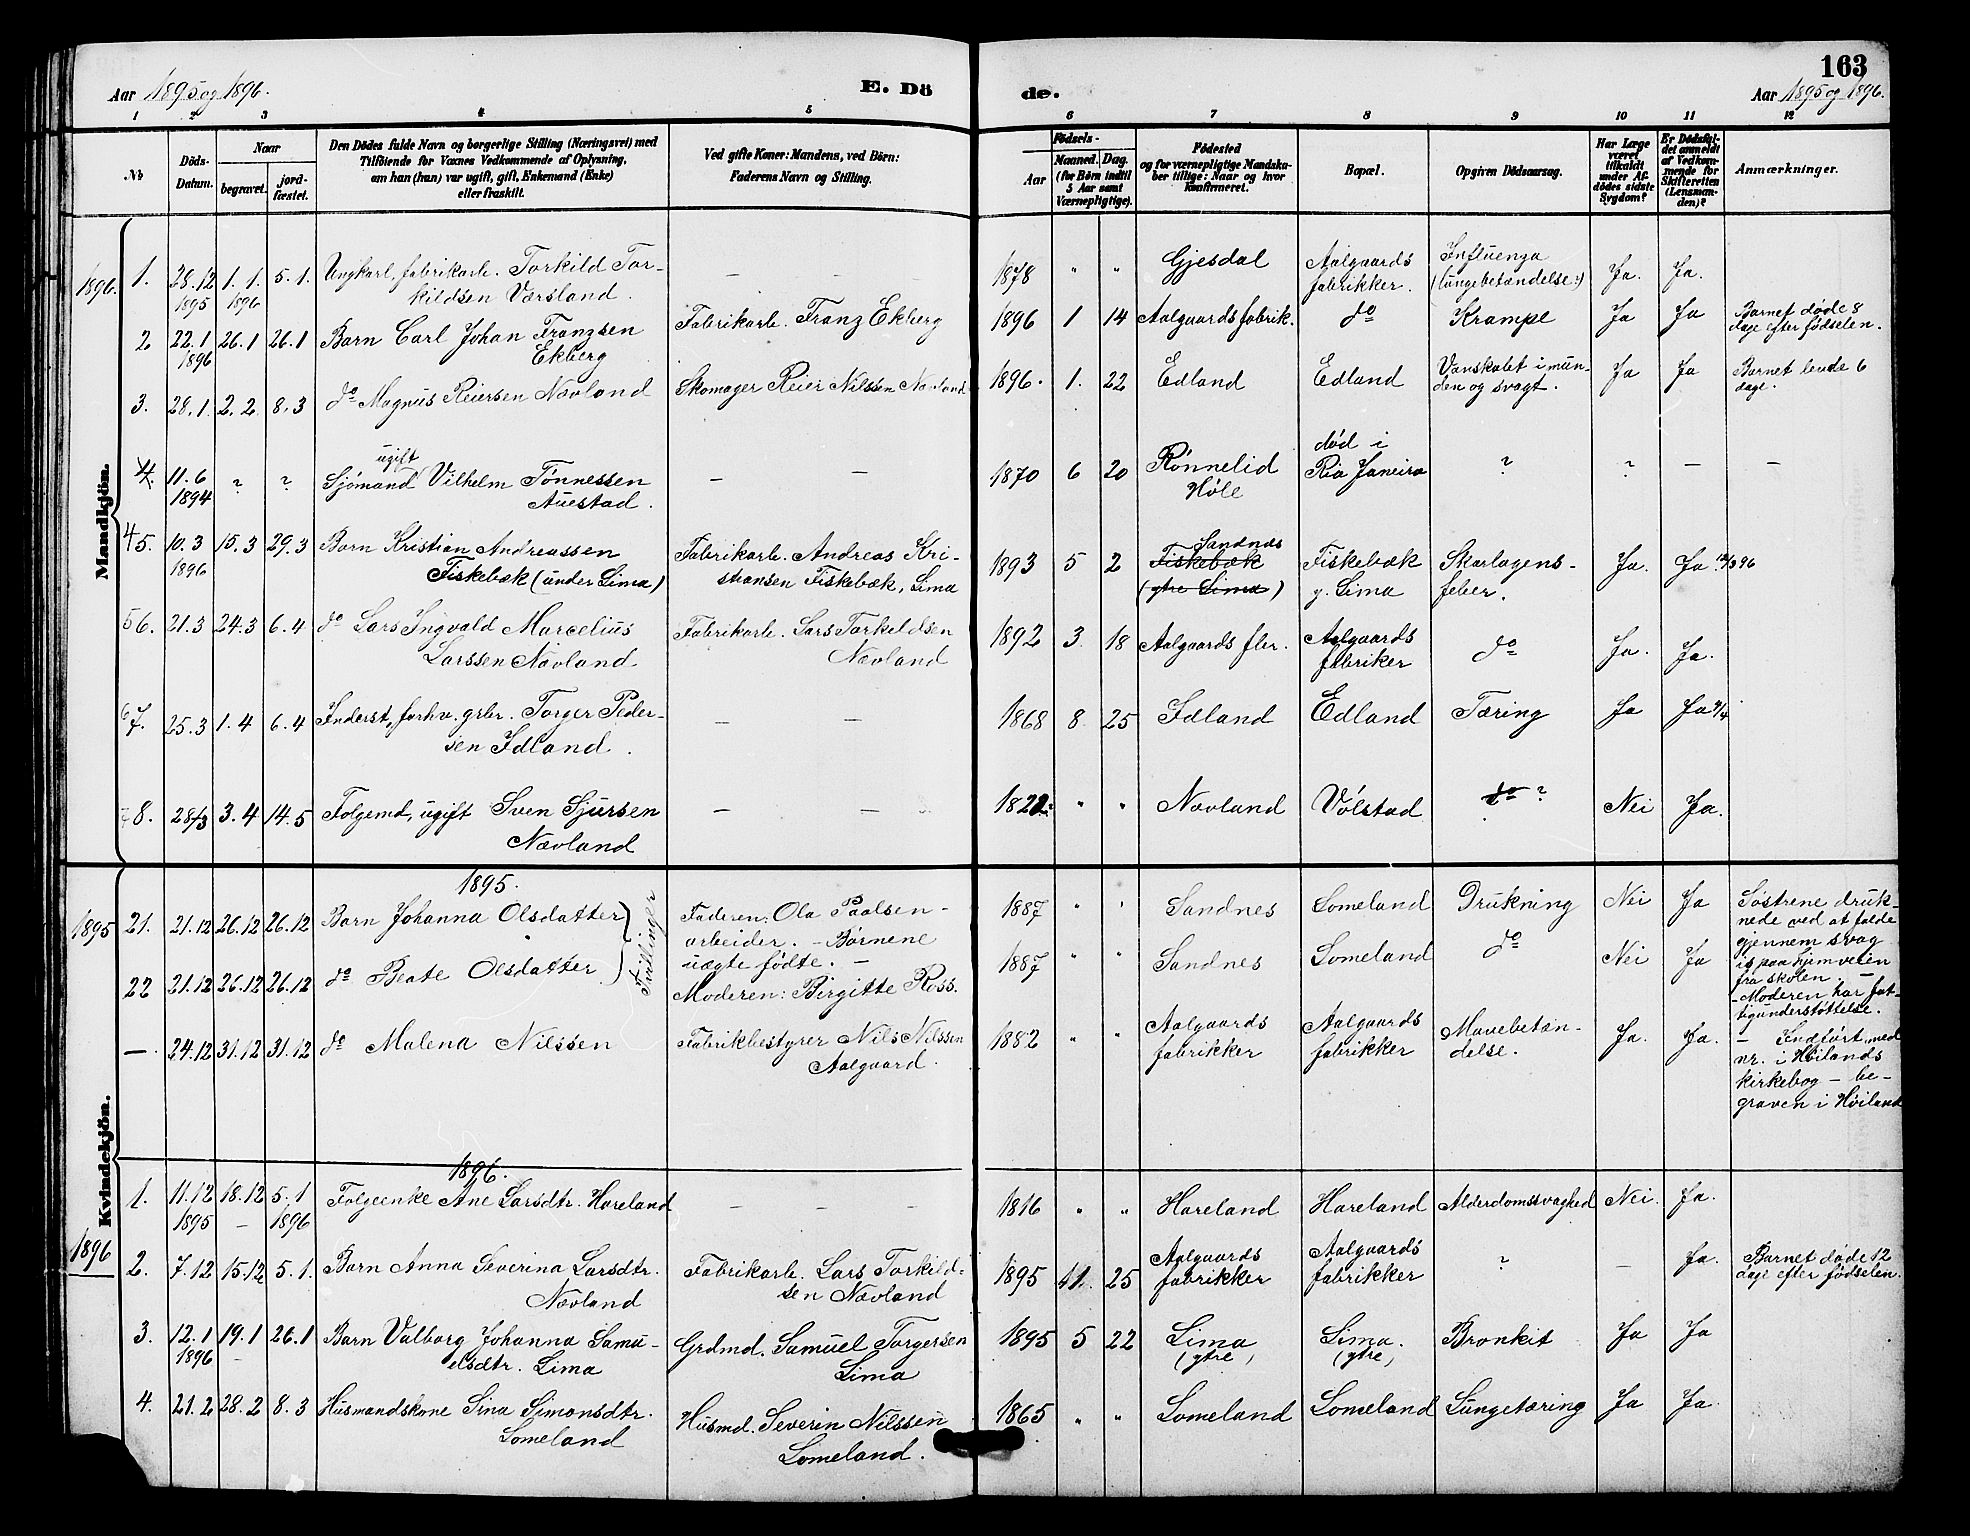 163
Aar 1895 og 1896. E. Dö de. Aar 1895 og 1896.
1 2 3 4 5 6 7 8 9 10 11 12
№
Döds-Datum.
Naar
begravet.
jordfæstet.
Den Dödes fulde Navn og borgerlige Stilling (Næringsvei) med
Tilföiende for Voxnes Vedkommende af Oplysning,
om han (hun) var ugift, gift, Enkemand (Enke)
eller fraskilt.
Ved gifte Koner: Mandens, ved Börn:
Faderens Navn og Stilling.
Födsels-
Aar
Maaned. Dag.
(for Börn indtil
5 Aar samt
Værnepligtige).
Födested
og for værnepligtige Mandska-
ber tillige: Naar og hvor
konfirmeret.
Bopæl.
Opgiven Dödsaarsag.
Har Læge
været
tilkaldt
under Af-
dödes sidste
Sygdom?
Er Dödsfal-
det anmeldt
af Vedkom-
mende for
Skifteretten
(Lensman-
den)?
Anmærkninger.
Mandkjön.
1896.
1. 28.12 1.1. 5.1. Ungkarl, fabrikarb. Torkild Tor- — — 1878 " " Gjesdal Aalgaards Influenza Ja. Ja.
1895 1896 kildsen Værsland. fabrikker. (lungebetændelse?)
2 22.1 26.1 26.1 Barn Carl Johan Franzsen Fabrikarb. Franz Ekberg 1896 1 14 Aalgaards fabrik. do Krampe Ja Ja Barnet døde 8
1896 Ekberg dage efter fødselen.
3. 28.1. 2.2. 8.3 do Magnus Reiersen Nævland Skomager Reier Nilssen Nævland 1896. 1. 22 Edland Edland Vanskabet i mun- Ja Ja Barnet levde 6
den og svagt. dage.
4. 11.6 ? ? ugift — — 1870 6 20 Rønnelid død i ? ? — —
1894 Sjömand Vilhelm Tønnessen Høle Rio Janeiro
Auestad.
4 5. 10.3 15.3 29.3 Barn Kristian Andreassen Fabrikarb. Andreas Kri- 1893 5 2 Sandnæs Fiskebæk Skarlagens- Ja. Ja. 12/3 96
1896 Fiskebæk (under Lima) stiansen Fiskebæk, Lima Fiskebæk y. Lima feber.
(ytre Lima)
5 6. 21.3 24.3 6.4 do Lars Ingvald Marcelius Fabrikarb. Lars Torkildsen 1892 3. 18 Aalgaards fbr. Aalgaards do Ja. Ja.
Larssen Nævland Nævland fabriker
6 7. 25.3 1.4 6.4 Inderst, forhv. grbr. Torger Peder- — — 1868 8. 25 Idland Edland Tæring Ja Ja 2/4
sen Idland.
7 8. 28/3 3.4 14.5 Folgemd, ugift Sven Sjursen — — 1822. " " Nævland Vølstad do ? Nei Ja.
Nævland
Kvindekjön.
1895.
1895 21. 21.12 26.12 26.12 Barn Johanna Olsdatter Faderen: Ola Paalsen- 1887 " " Sandnes Lomeland Drukning Nei Ja Søstrene druk-
Tvillinger arbeider. — Børnene nede ved at falde
uægte fødte. — gjennem svag
22 21.12 26.12 26.12 do Beate Olsdatter Moderen: Birgitte Ross. 1887 " " Sandnes Lomeland do Nei Ja is paa hjemveien
fra skolen. —
— Moderen har fat-
tigunderstøttelse.
—. 24.12 31.12 31.12 do Malena Nilssen Fabrikbestyrer Nils Nilssen 1882 " " Aalgaards Aalgaards Mavebetæn- Ja. Ja. — Indført med
Aalgaard. fabrikker fabrikker delse. nr. i Høilands
kirkebog — be-
graven i Høiland
1896.
1. 11.12 18.12 5.1 Folgeenke Ane Larsdtr. Hareland — — — 1816 " " Hareland Hareland Alderdomssvaghed Nei. Ja.
1895 — 1896
1896
2. 7.12 15.12 5.1. Barn Anna Severina Larsdtr. Fabrikarb. Lars Torkild- 1895 11. 25 Aalgaards Aalgaards ? — Ja. Barnet døde 12
Nævland sen Nævland fabrikker fabrikker dage efter fødselen.
3. 12.1 19.1 26.1 Barn Valborg Johanna Samu- Grdmd. Samuel Torgersen 1895 5 22 Lima Lima. Bronkit Ja Ja
1896 — elsdtr. Lima Lima (ytre) (ytre)
4. 21.2 28.2 8.3 Husmandskone Sina Simonsdtr. Husmd. Severin Nilssen 1865 " " Lomeland Lomeland Lungetæring Ja Ja.
Lomeland Lomeland.